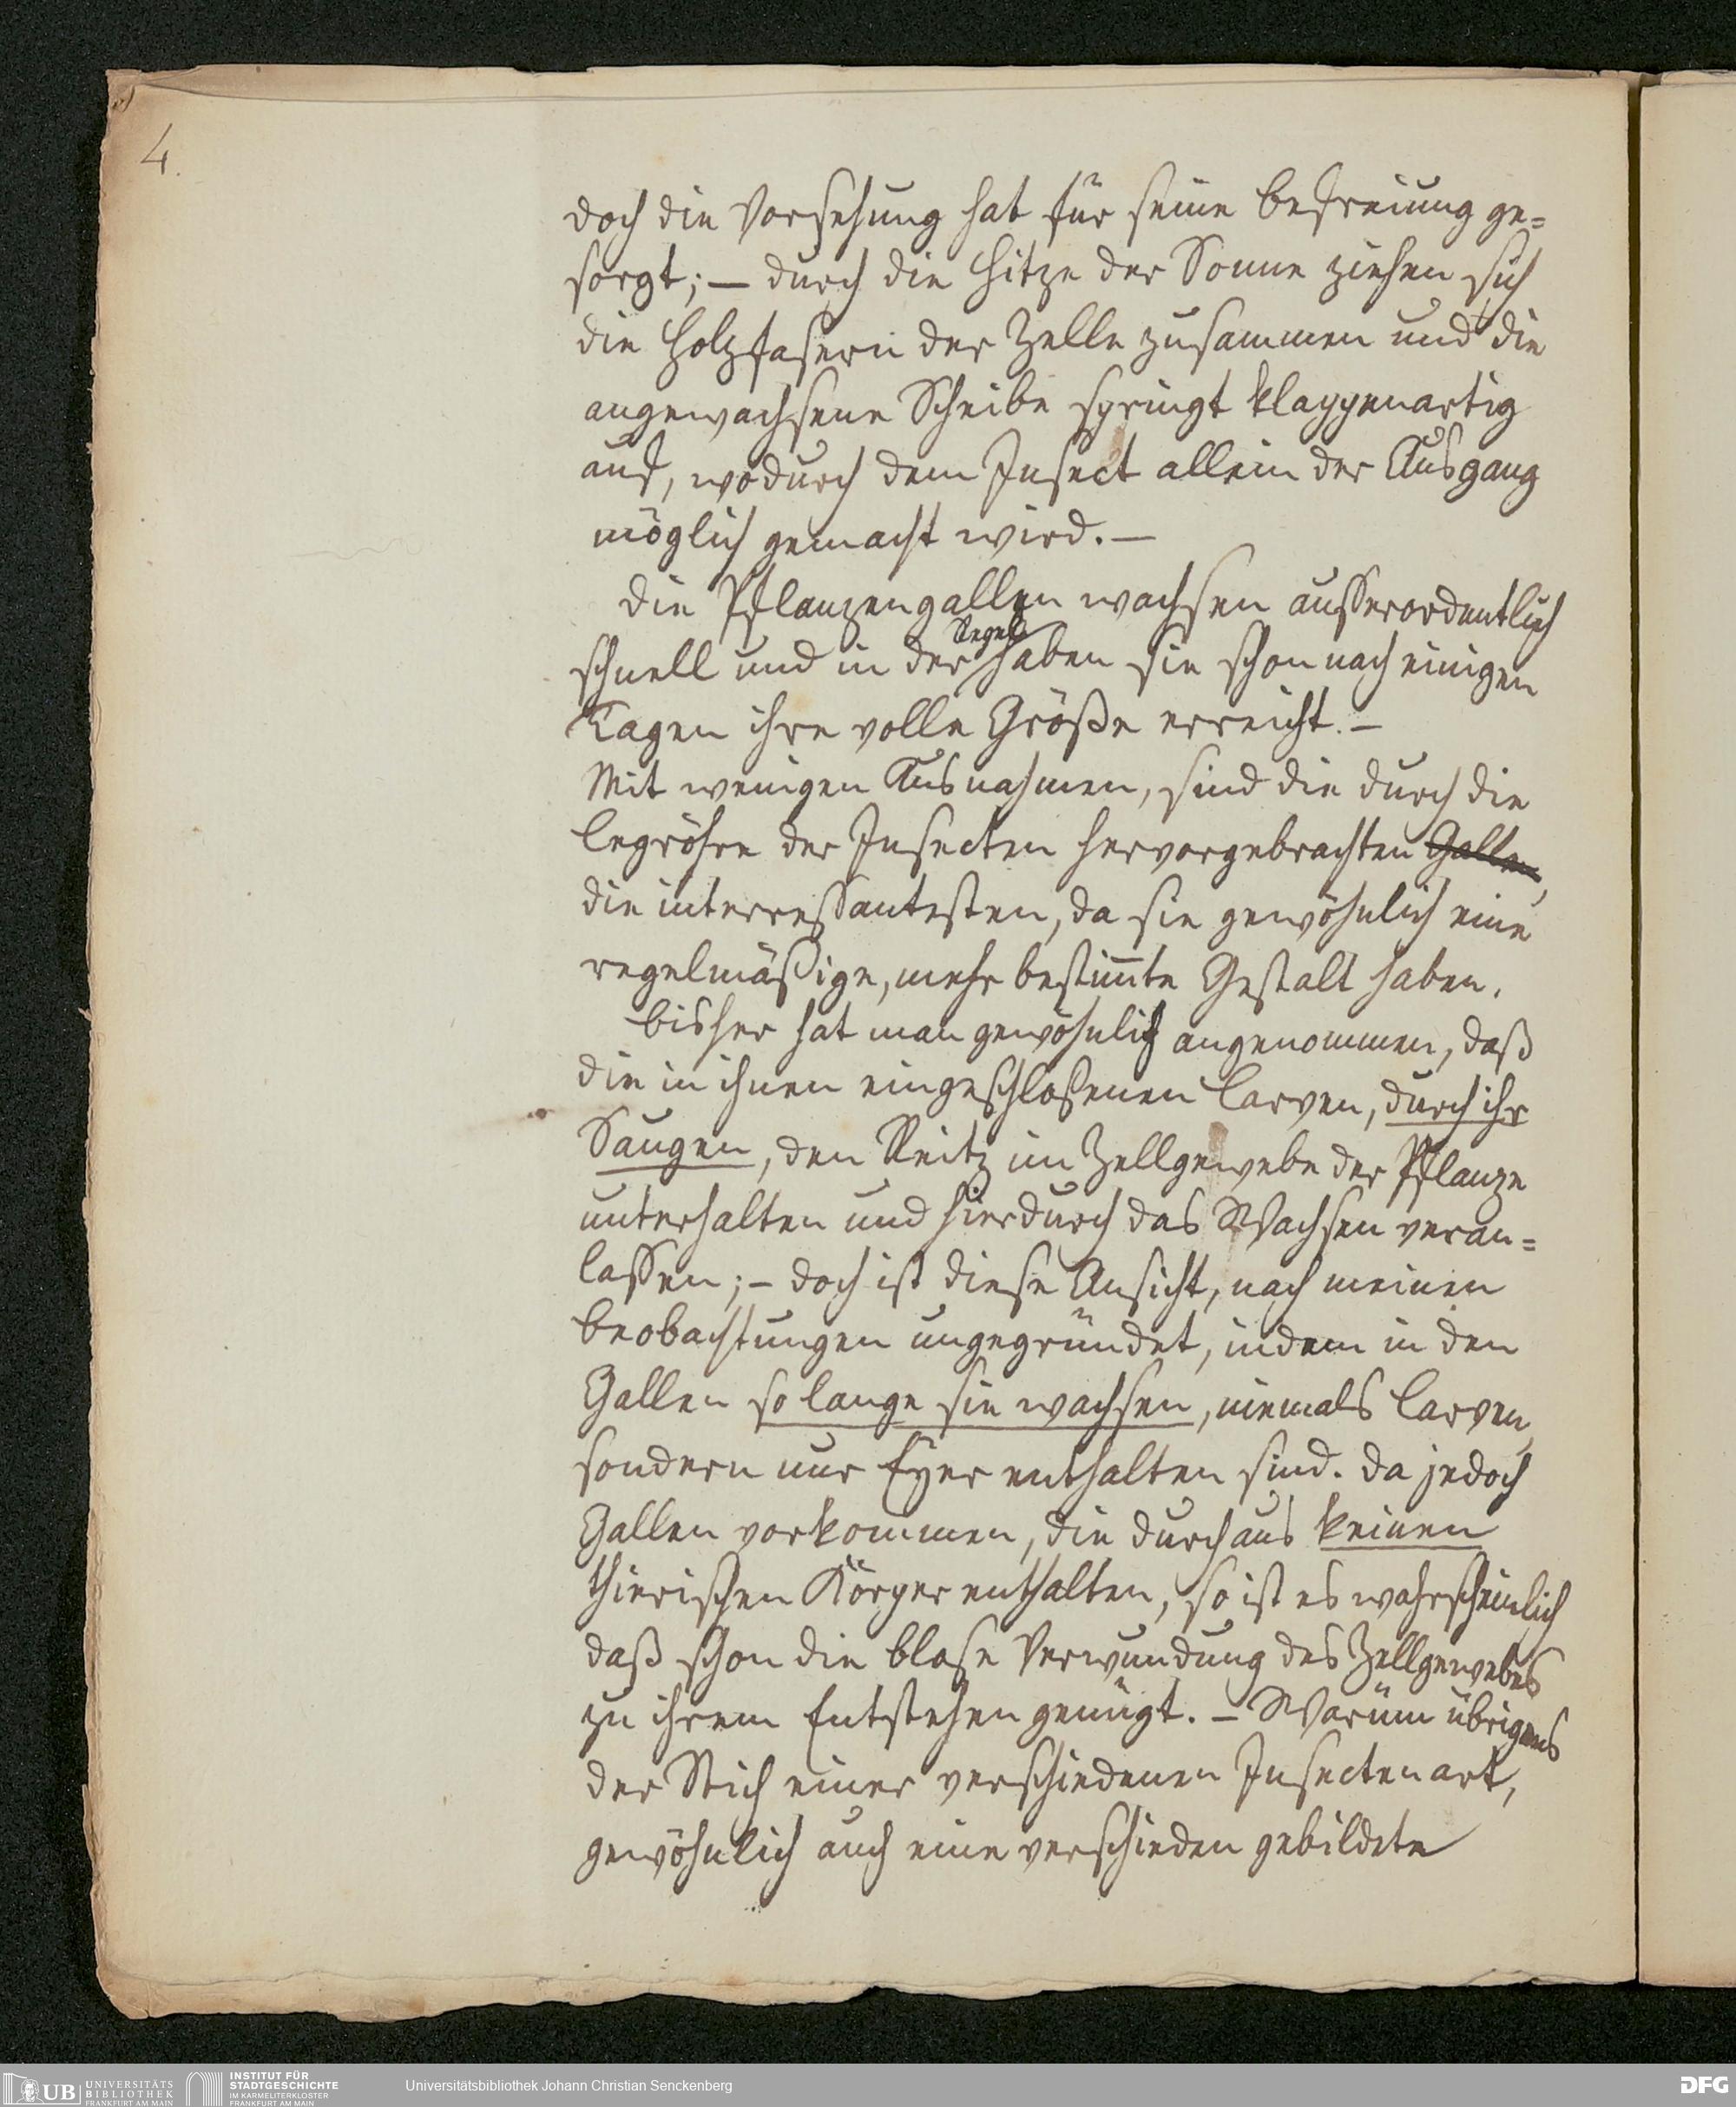 4.
doch die Vorsehung hat für seine Befreiung ge=
sorgt; — durch die Hitze der Sonne ziehen sich
die Holzfasern der Zelle zusammen und die
angewachsene Scheibe springt klappenartig
auf, wodurch dem Insect allein der Ausgang
möglich gemacht wird. —
Die Pflanzengallen wachsen ausserordentlich
Regel
schnell und in der haben sie schon nach einigen
Tagen ihre volle Größe erreicht. —
Mit wenigen Ausnahmen, sind die durch die
Legröhre der Insecten hervorgebrachten Gallen,
die interressantesten, da sie gewöhnlich eine
regelmäßige, mehr bestim̄te Gestalt haben.
Bisher hat man gewöhnlich angenommen, daß
die in ihnen eingeschloßenen Larven, durch ihr
Saugen, den Reitz im Zellgewebe der Pflanze
unterhalten und hierdurch das Wachsen veran=
lassen; – doch ist diese Ansicht, nach meinen
Beobachtungen ungegründet, indem in den
Gallen so lange sie wachsen, niemals Larven,
sondern nur Eyer enthalten sind. Da jedoch
Gallen vorkommen, die durchaus keinen
thierischen Körper enthalten, so ist es wahrscheinlich
daß schon die blose Verwundung des Zellgewebes
zu ihrem Entstehen genügt. – Warum übrigens
der Stich einer verschiedenen Insectenart,
gewöhnlich auch eine verschieden gebildete
UB UNIVERSITÄTS
BIBLIOTHEK
FRANKFURT AM MAIN
INSTITUT FÜR
STADTGESCHICHTE
IM KARMELITERKLOSTER
FRANKFURT AM MAIN
Universitätsbibliothek Johann Christian Senckenberg
DFG